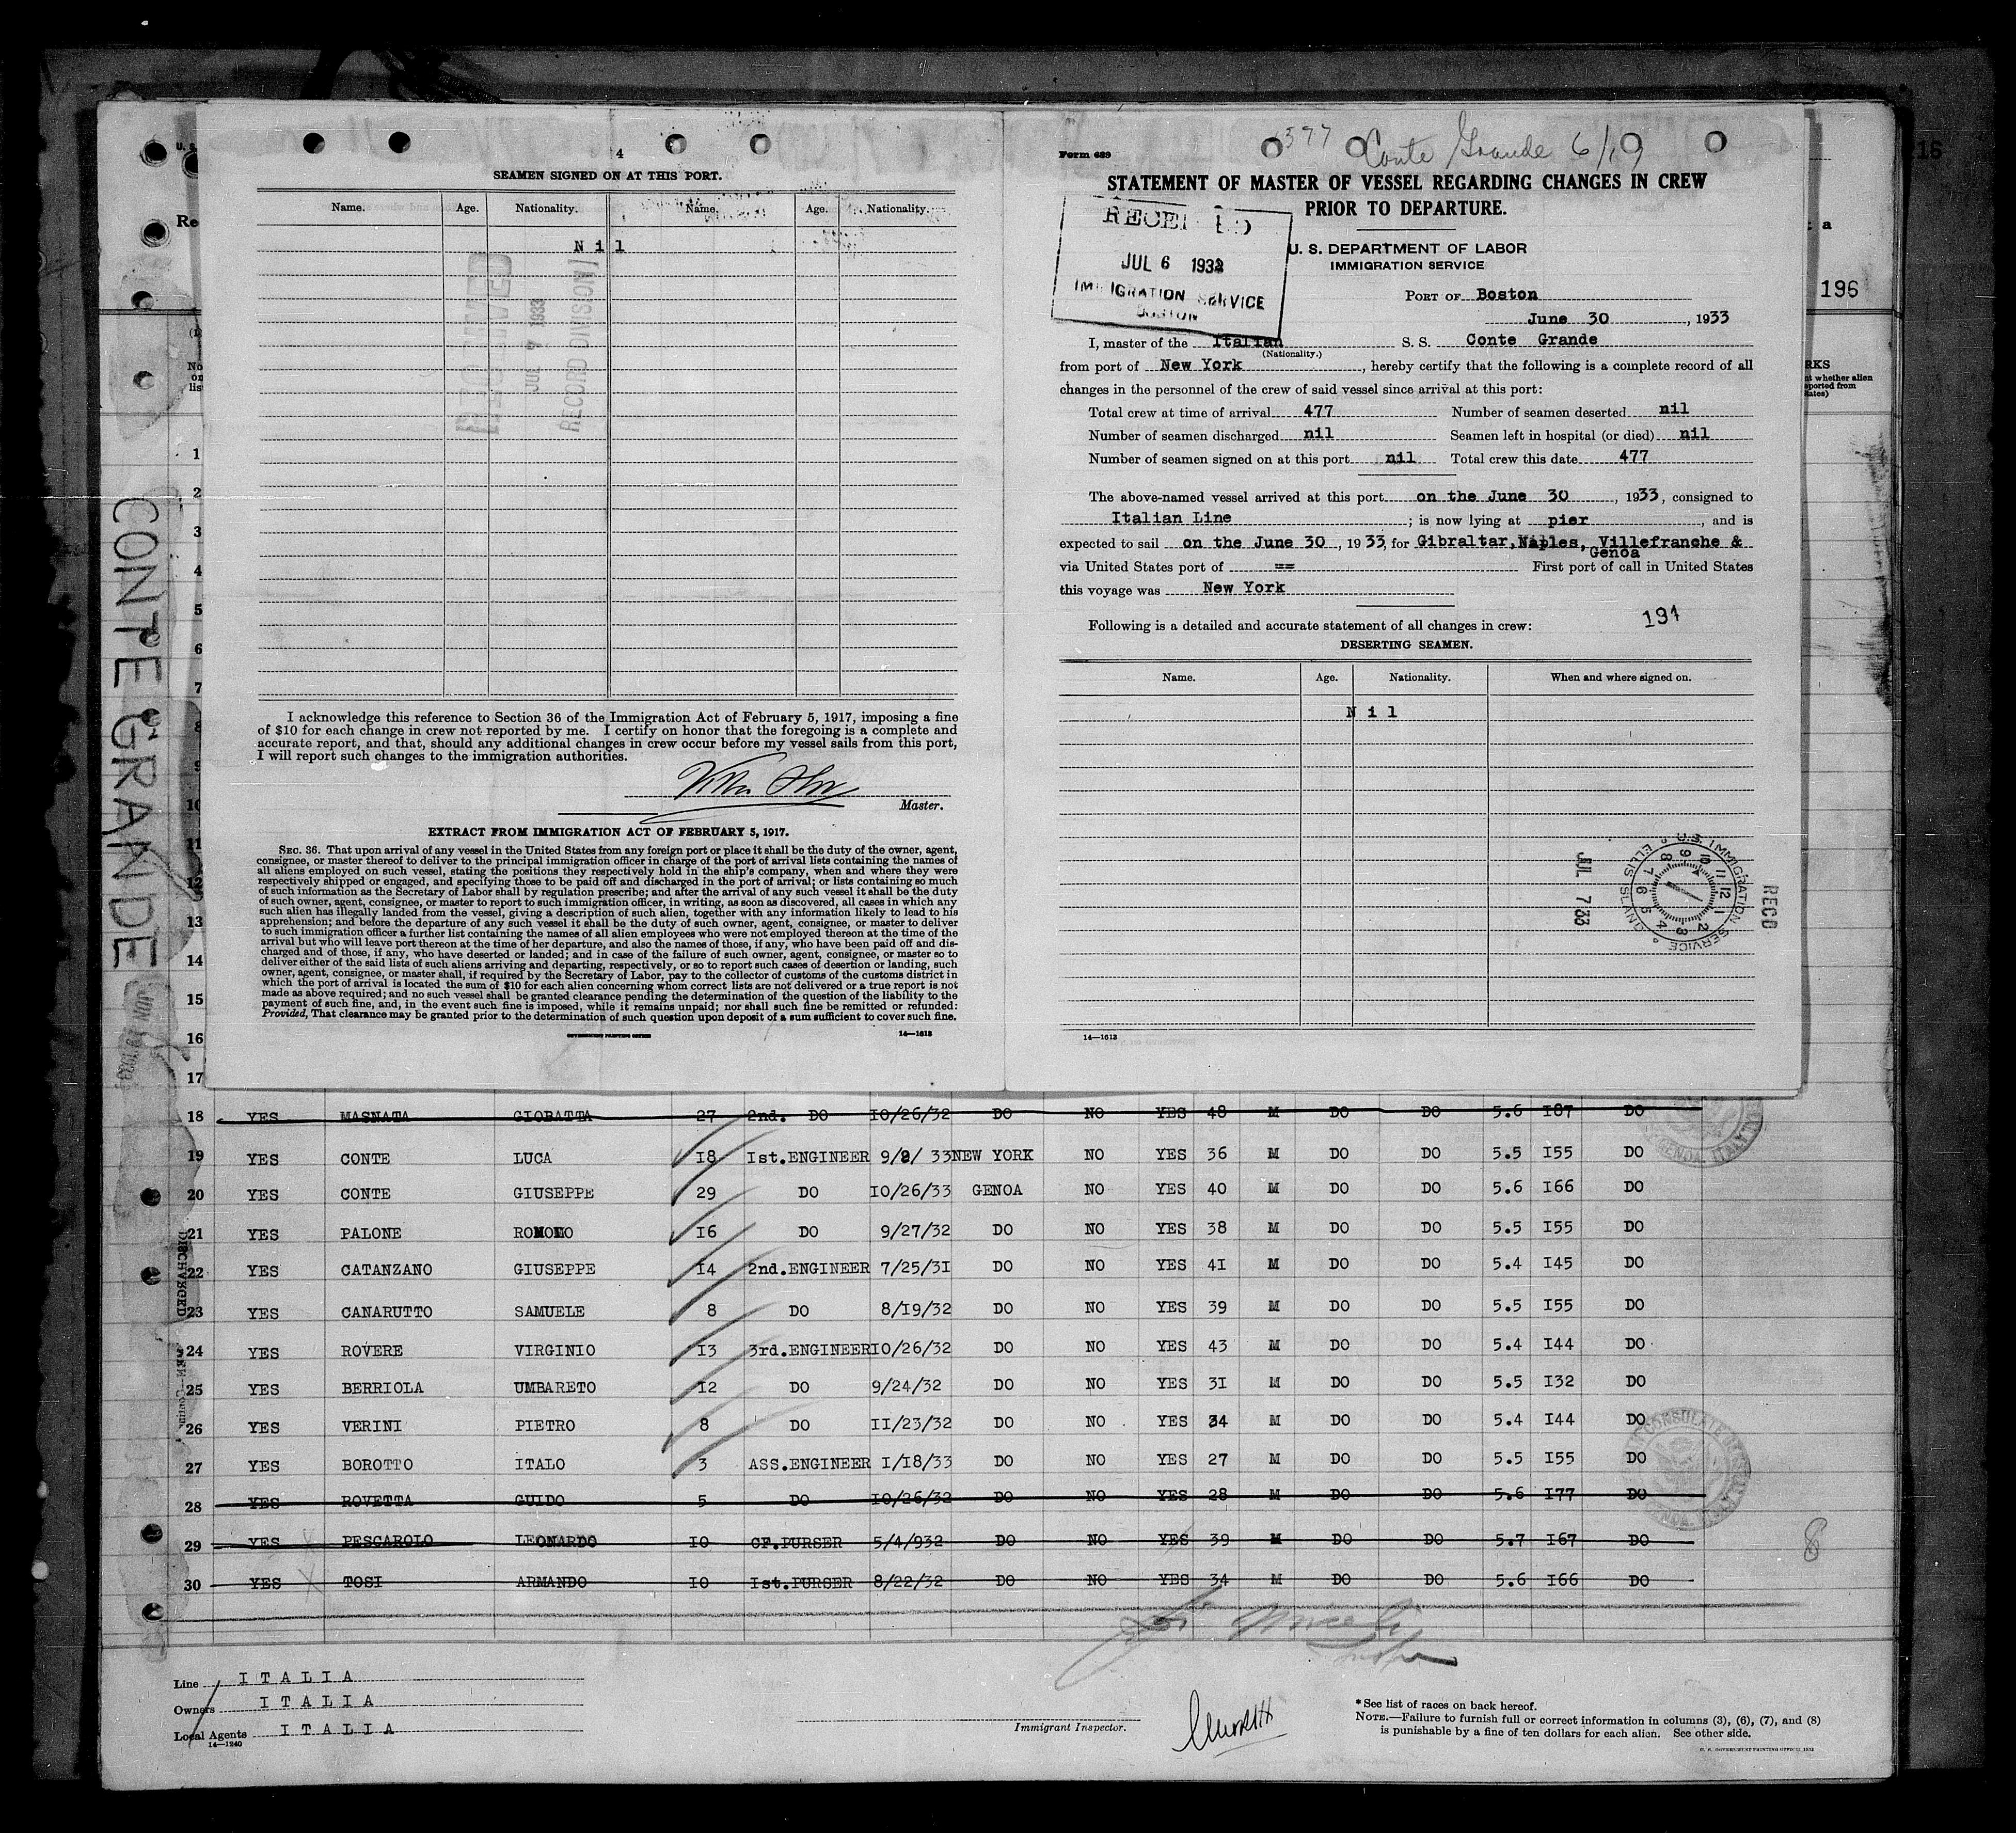 4
SEAMEN SIGNED ON AT THIS PORT.
Name. Age. Nationality. Name. Age. Nationality.
Nil
JUL 7 1933
RECORD DIVISION
I acknowledge this reference to Section 36 of the Immigration Act of February 5, 1917, imposing a fine
of $10 for each change in crew not reported by me. I certify on honor that the foregoing is a complete and
accurate report, and that, should any additional changes in crew occur before my vessel sails from this port,
I will report such changes to the immigration authorities.
Master.
EXTRACT FROM IMMIGRATION ACT OF FEBRUARY 5, 1917.
SEC. 36. That upon arrival of any vessel in the United States from any foreign port or place it shall be the duty of the owner, agent,
consignee, or master thereof to deliver to the principal immigration officer in charge of the port of arrival lists containing the names of
all aliens employed on such vessel, stating the positions they respectively hold in the ship's company, when and where they were
respectively shipped or engaged, and specifying those to be paid off and discharged in the port of arrival; or lists containing so much
of such information as the Secretary of Labor shall by regulation prescribe; and after the arrival of any such vessel it shall be the duty
of such owner, agent, consignee, or master to report to such immigration officer, in writing, as soon as discovered, all cases in which any
such alien has illegally landed from the vessel, giving a description of such alien, together with any information likely to lead to his
apprehension; and before the departure of any such vessel it shall be the duty of such owner, agent, consignee, or master to deliver
to such immigration officer a further list containing the names of all alien employees who were not employed thereon at the time of the
arrival but who will leave port thereon at the time of her departure, and also the names of those, if any, who have been paid off and dis-
charged and of those, if any, who have deserted or landed; and in case of the failure of such owner, agent, consignee, or master so to
deliver either of the said lists of such aliens arriving and departing, respectively, or so to report such cases of desertion or landing, such
owner, agent, consignee, or master shall, if required by the Secretary of Labor, pay to the collector of customs of the customs district in
which the port of arrival is located the sum of $10 for each alien concerning whom correct lists are not delivered or a true report is not
made as above required; and no such vessel shall be granted clearance pending the determination of the question of the liability to the
payment of such fine, and, in the event such fine is imposed, while it remains unpaid; nor shall such fine be remitted or refunded:
Provided, That clearance may be granted prior to the determination of such question upon deposit of a sum sufficient to cover such fine.
GOVERNMENT PRINTING OFFICE 14—1613
Form 689
1377 Conte Grande 6/19
STATEMENT OF MASTER OF VESSEL REGARDING CHANGES IN CREW
PRIOR TO DEPARTURE.
RECEIVED
JUL 6 1933
IMMIGRATION SERVICE
BOSTON
U. S. DEPARTMENT OF LABOR
IMMIGRATION SERVICE
PORT OF Boston
June 30, 1933
I, master of the Italian S. S. Conte Grande
(Nationality.)
from port of New York, hereby certify that the following is a complete record of all
changes in the personnel of the crew of said vessel since arrival at this port:
Total crew at time of arrival 477 Number of seamen deserted nil
Number of seamen discharged nil Seamen left in hospital (or died) nil
Number of seamen signed on at this port nil Total crew this date 477
The above-named vessel arrived at this port on the June 30, 1933, consigned to
Italian Line; is now lying at pier, and is
expected to sail on the June 30, 1933, for Gibraltar, Naples, Villefranche &
Genoa
via United States port of == First port of call in United States
this voyage was New York
191
Following is a detailed and accurate statement of all changes in crew:
DESERTING SEAMEN.
Name. Age. Nationality. When and where signed on.
Nil
U.S. IMMIGRATION SERVICE ELLIS ISLAND
JUL 7 33
RECD
14—1613
16
196
CONTE GRANDE
JUN 19 1933
DISCHARGED
1
2
3
4
5
6
7
8
9
10
11
12
13
14
15
16
17
18 YES MASNATA GIOBATTA 27 2nd. DO 10/26/32 DO NO YES 48 M DO DO 5.6 187 DO
19 YES CONTE LUCA 18 1st.ENGINEER 9/8/ 33 NEW YORK NO YES 36 M DO DO 5.5 155 DO
20 YES CONTE GIUSEPPE 29 DO 10/26/33 GENOA NO YES 40 M DO DO 5.6 166 DO
21 YES PALONE ROMOMO 16 DO 9/27/32 DO NO YES 38 M DO DO 5.5 155 DO
22 YES CATANZANO GIUSEPPE 14 2nd.ENGINEER 7/25/31 DO NO YES 41 M DO DO 5.4 145 DO
23 YES CANARUTTO SAMUELE 8 DO 8/19/32 DO NO YES 39 M DO DO 5.5 155 DO
24 YES ROVERE VIRGINIO 13 3rd.ENGINEER 10/26/32 DO NO YES 43 M DO DO 5.4 144 DO
25 YES BERRIOLA UMBARETO 12 DO 9/24/32 DO NO YES 31 M DO DO 5.5 132 DO
26 YES VERINI PIETRO 8 DO 11/23/32 DO NO YES 34 M DO DO 5.4 144 DO
27 YES BOROTTO ITALO 3 ASS.ENGINEER 1/18/33 DO NO YES 27 M DO DO 5.5 155 DO
28 YES ROVETTA GUIDO 5 DO 10/26/32 DO NO YES 28 M DO DO 5.6 177 DO
29 YES PESCAROLO LEONARDO 10 CF.PURSER 5/4/932 DO NO YES 39 M DO DO 5.7 167 DO
30 YES TOSI ARMANDO 10 1st.PURSER 8/22/32 DO NO YES 34 M DO DO 5.6 166 DO
8
Line ITALIA
Owners ITALIA
Local Agents ITALIA
14—1240
Immigrant Inspector.
* See list of races on back hereof.
NOTE.—Failure to furnish full or correct information in columns (3), (6), (7), and (8)
is punishable by a fine of ten dollars for each alien. See other side.
U. S. GOVERNMENT PRINTING OFFICE: 1932